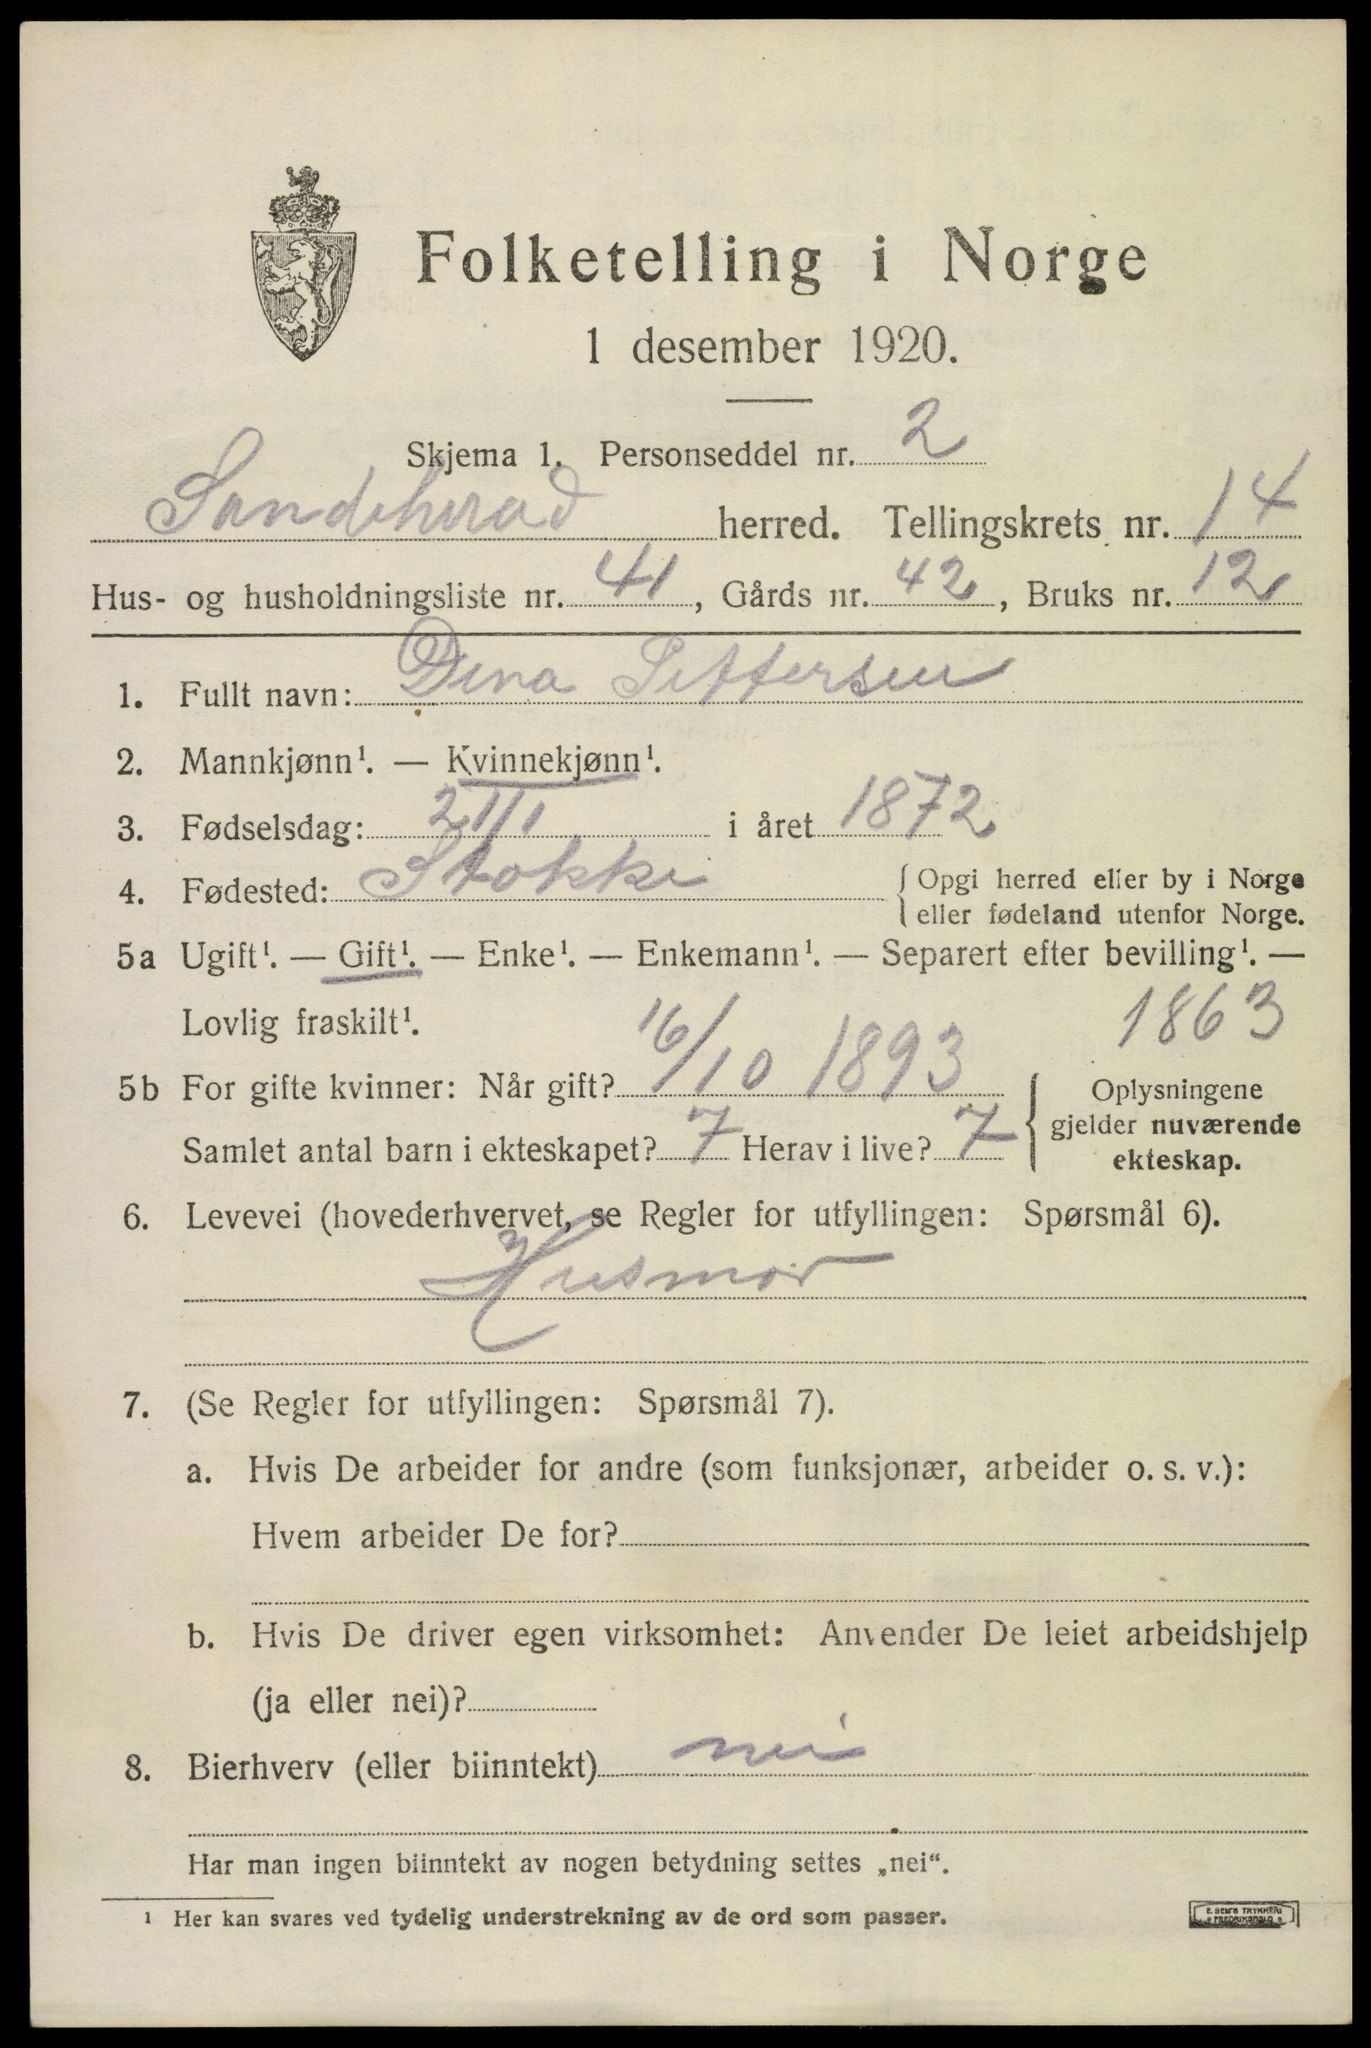 Folketelling i Norge
1 desember 1920.
Skjema 1. Personseddel nr. 2
Sandeherad herred. Tellingskrets nr. 14
Hus- og husholdningsliste nr. 41, Gårds nr. 42, Bruks nr. 12
1. Fullt navn: Dina Pettersen
2. Mannkjønn¹. — Kvinnekjønn¹.
3. Fødselsdag: 21/1 i året 1872
4. Fødested: Stokke { Opgi herred eller by i Norge
eller fødeland utenfor Norge.
5a Ugift¹. — Gift¹. — Enke¹. — Enkemann¹. — Separert efter bevilling¹. —
Lovlig fraskilt¹. 1863
5b For gifte kvinner: Når gift? 16/10 1893 { Oplysningene
gjelder nuværende
ekteskap.
Samlet antal barn i ekteskapet? 7 Herav i live? 7
6. Levevei (hovederhvervet, se Regler for utfyllingen: Spørsmål 6).
Husmor
7. (Se Regler for utfyllingen: Spørsmål 7).
a. Hvis De arbeider for andre (som funksjonær, arbeider o. s. v.):
Hvem arbeider De for?
b. Hvis De driver egen virksomhet: Anvender De leiet arbeidshjelp
(ja eller nei)?
8. Bierhverv (eller biinntekt) nei
Har man ingen biinntekt av nogen betydning settes „nei“.
¹ Her kan svares ved tydelig understrekning av de ord som passer.
E. SEM'S TRYKKERI
FREDRIKSHALD